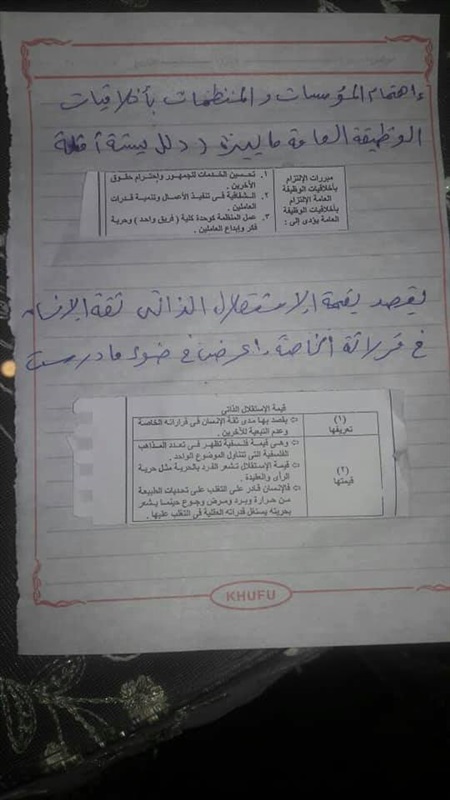 واهتمام المؤسسات والمنظمات بأخلاقيات
الوظيفة العامة ما يبرره ( دلل بستة أدلة
مبررات الإلتزام بأخلاقيات الوظيفة العامة الإلتزام بأخلاقيات الوظيفة العامة يؤدى إلى :
١. تحسين الخدمات للجمهور وإحترام حقوق الآخرين .
٢. الشفافية فى تنفيذ الأعمال وتنمية قدرات العاملين .
٣. عمل المنظمة كوحدة كلية ( فريق واحد ) وحرية فكر وإبداع العاملين .
يقصد بقيمة الاستقلال الذاتى ثقة الإنسان
فى قراراته الخاصة . اعرض فى ضوء ما درست
قيمة الإستقلال الذاتى
(١) تعريفها
يقصد بها مدى ثقة الإنسان فى قراراته الخاصة وعدم التبعية للآخرين .
(٢) قيمتها
وهى قيمة فلسفية تظهر فى تعدد المذاهب الفلسفية التى تتناول الموضوع الواحد .
قيمة الإستقلال تشعر الفرد بالحرية مثل حرية الرأى والعقيدة .
فالإنسان قادر على التغلب على تحديات الطبيعة من حرارة وبرد ومرض وجوع حينما يشعر بحريته يستغل قدراته العقلية فى التغلب عليها .
KHUFU